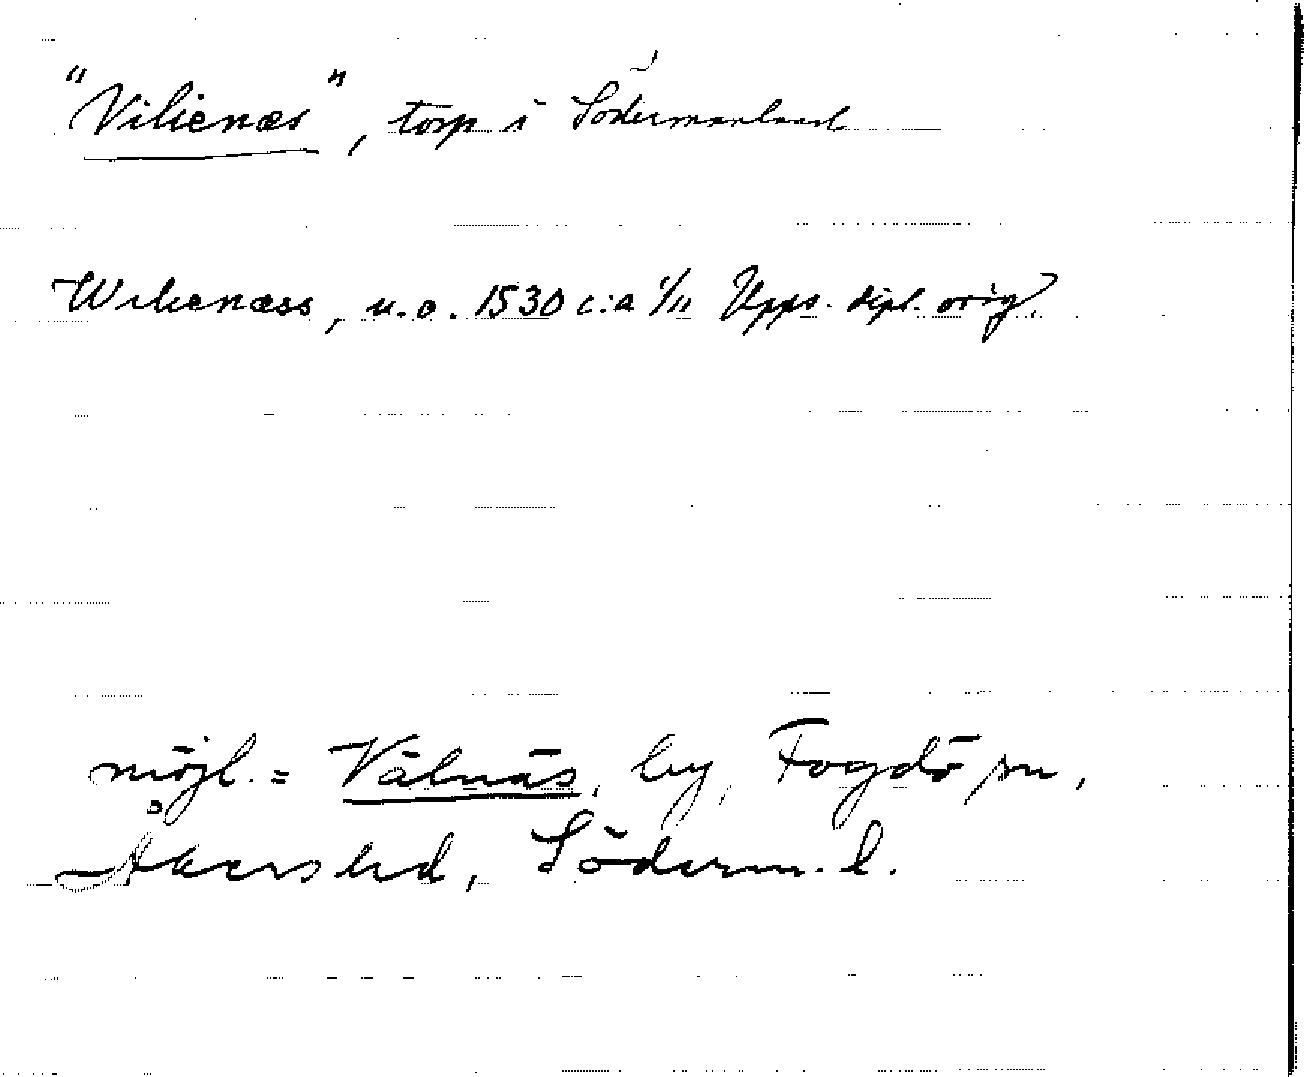 "Vilienæs", torp i Södermanland
Wilienæss, u.o. 1530 c:a 1/11 Upps. dipl. orig.
möjl. = Välnäs, by, Fogdö sn,
Åkers hd, Söderm. l.